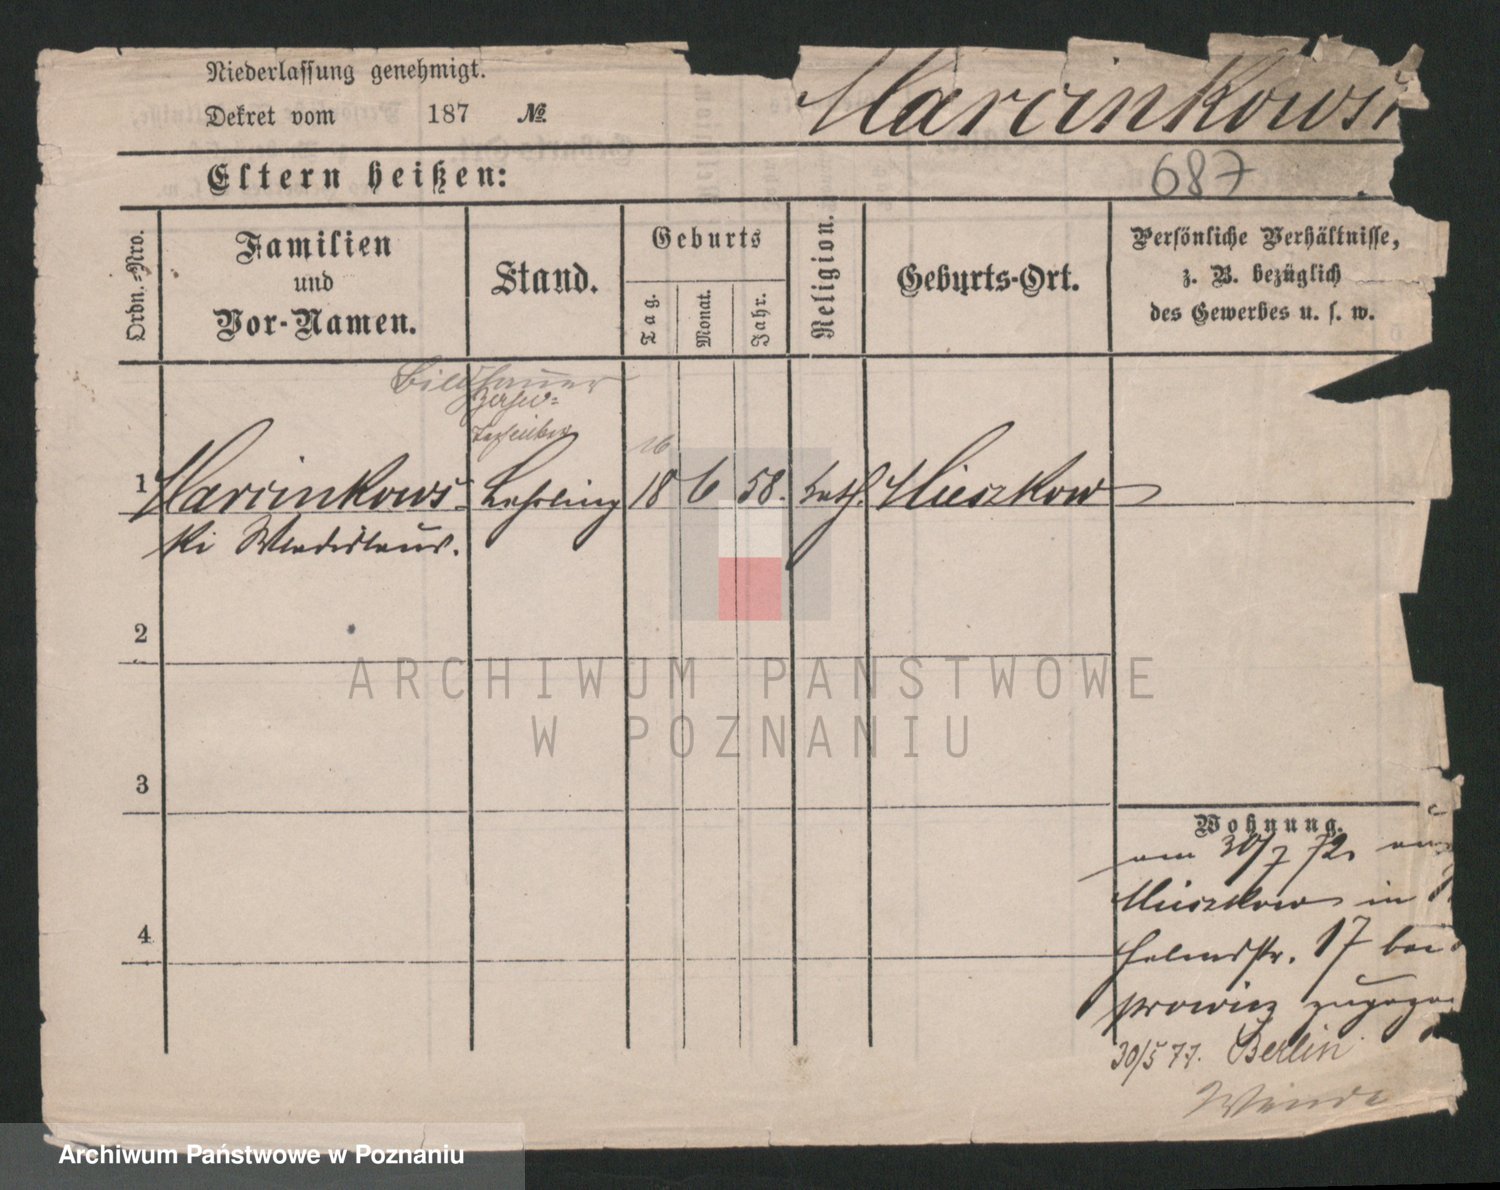 Niederlassung genehmigt.
Dekret vom 187 №
Marcinkows
687
Eltern heißen:
Ordn.-Nro.
Familien
und
Vor-Namen.
Stand.
Geburts
Tag.
Monat.
Jahr.
Religion.
Geburts-Ort.
Persönliche Verhältnisse,
z. B. bezüglich
des Gewerbes u. s. w.
Bildhauer
16
1 Marcinkows- Lehrling 18 6 58. kath. Mieszkow
ki Wladislaus.
2
3
4
Wohnung.
am 30/7 72.
Mieszkow in
helmstr. 17 bei
prowicz zugezo
30/5 77. Berlin
ARCHIWUM PAŃSTWOWE
W POZNANIU
Archiwum Państwowe w Poznaniu